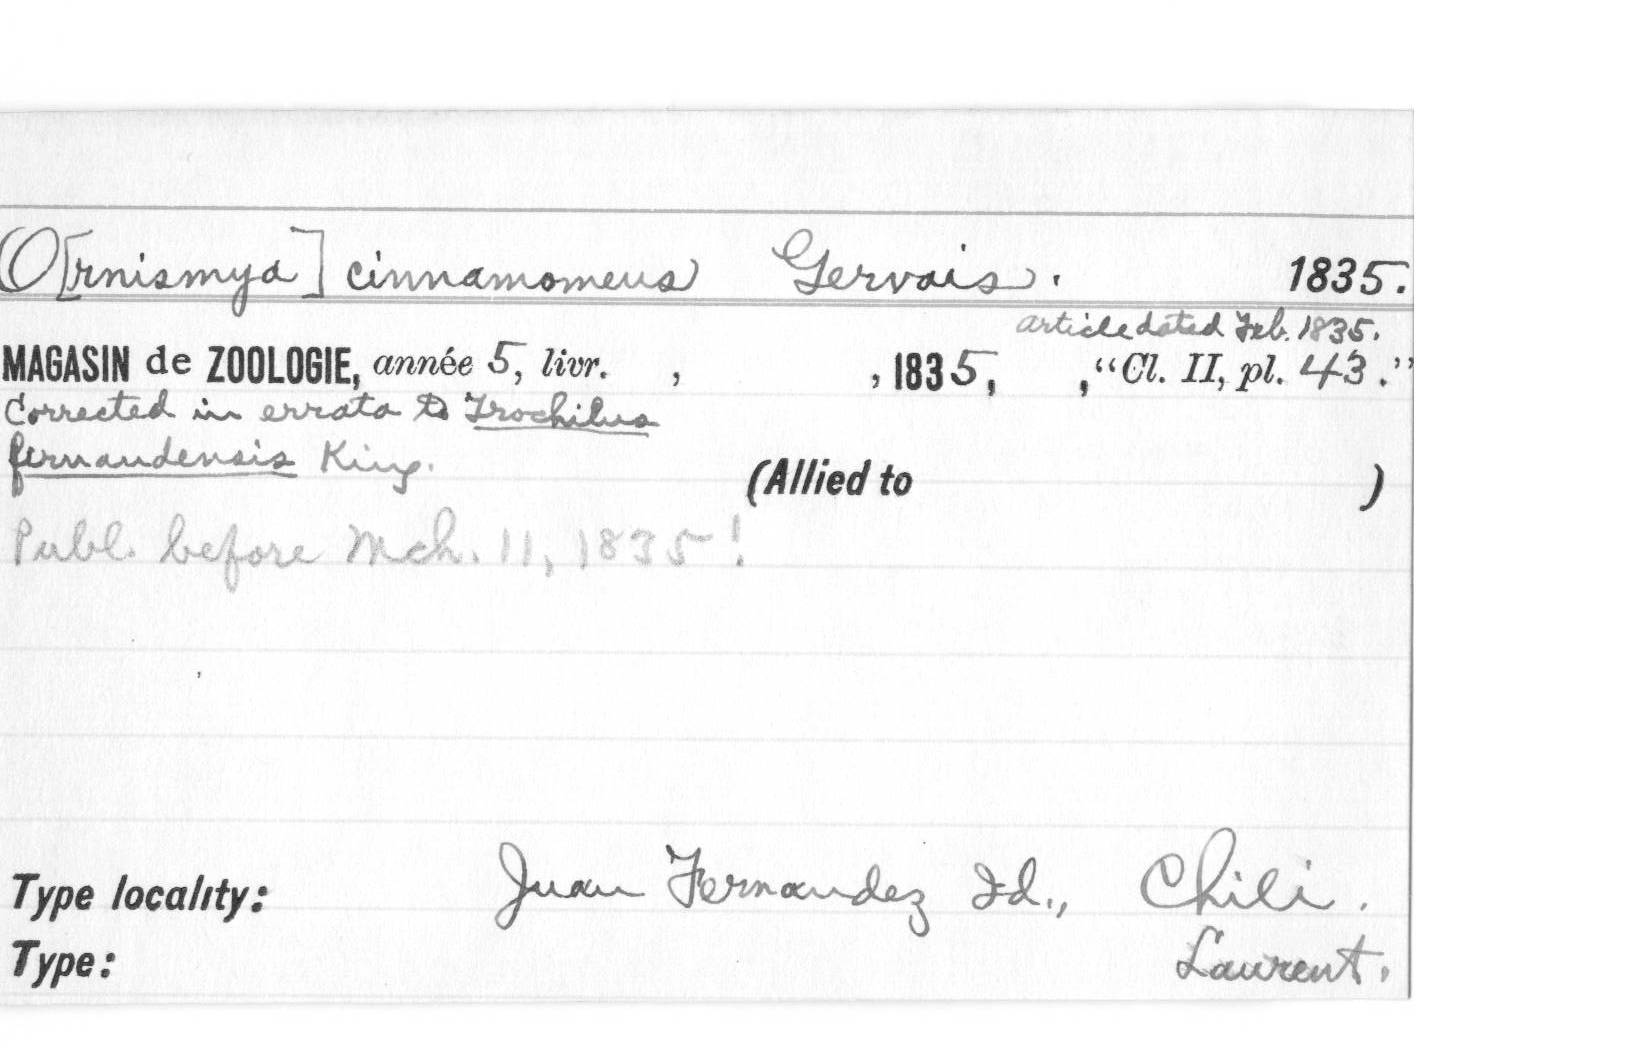 O[rnismya] cinnamomeus Gervais. 1835.
article dated Feb. 1835.
MAGASIN de ZOOLOGIE, année 5, livr. , , 1835, , "Cl. II, pl. 43."
Corrected in errata to Trochilus
fernandensis King.
(Allied to )
Publ. before Mch. 11, 1835!
Type locality: Juan Fernandez Id., Chili.
Type: Laurent.